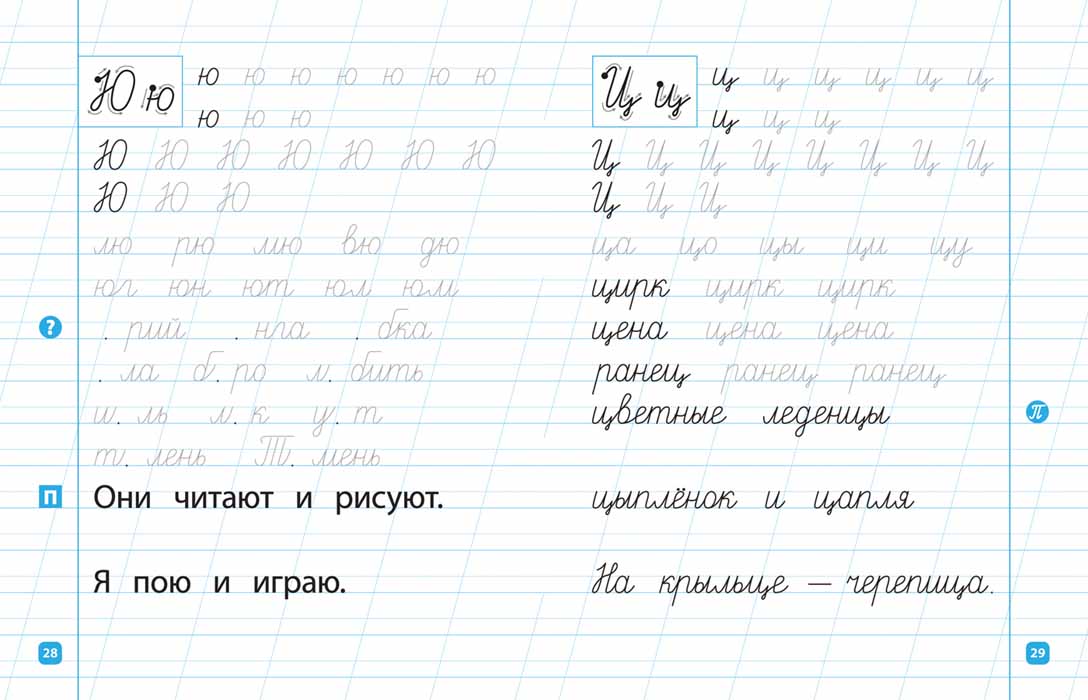 Ю ю ю ю ю ю ю ю ю
ю ю ю
Ю Ю Ю Ю Ю Ю Ю
Ю Ю Ю
лю рю мю вю дю
юг юн ют юл юм
? . рий . нга . бка
. ла б. ро л. бить
ш. ль л. к у. т
т. лень Т. мень
П Они читают и рисуют.
Я пою и играю.
28
Ц ц ц ц ц ц ц ц
ц ц ц
Ц Ц Ц Ц Ц Ц Ц
Ц Ц Ц
ца цо цы ци цу
цирк цирк цирк
цена цена цена
ранец ранец ранец
цветные леденцы П
цыплёнок и цапля
На крыльце – черепица.
29